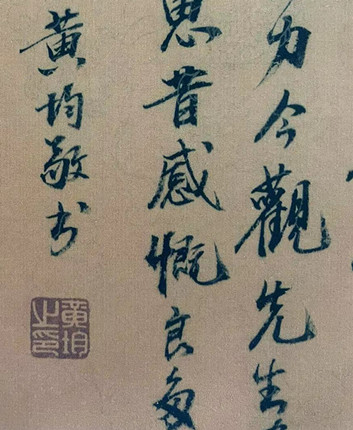 力今觀先生
思昔感慨良多
黃均敬书
黃均之印